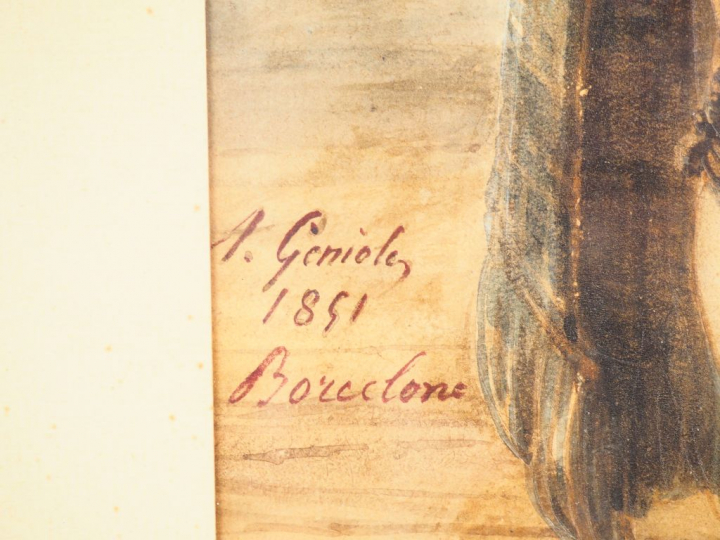 A. Geniole,
1851
Barcelone